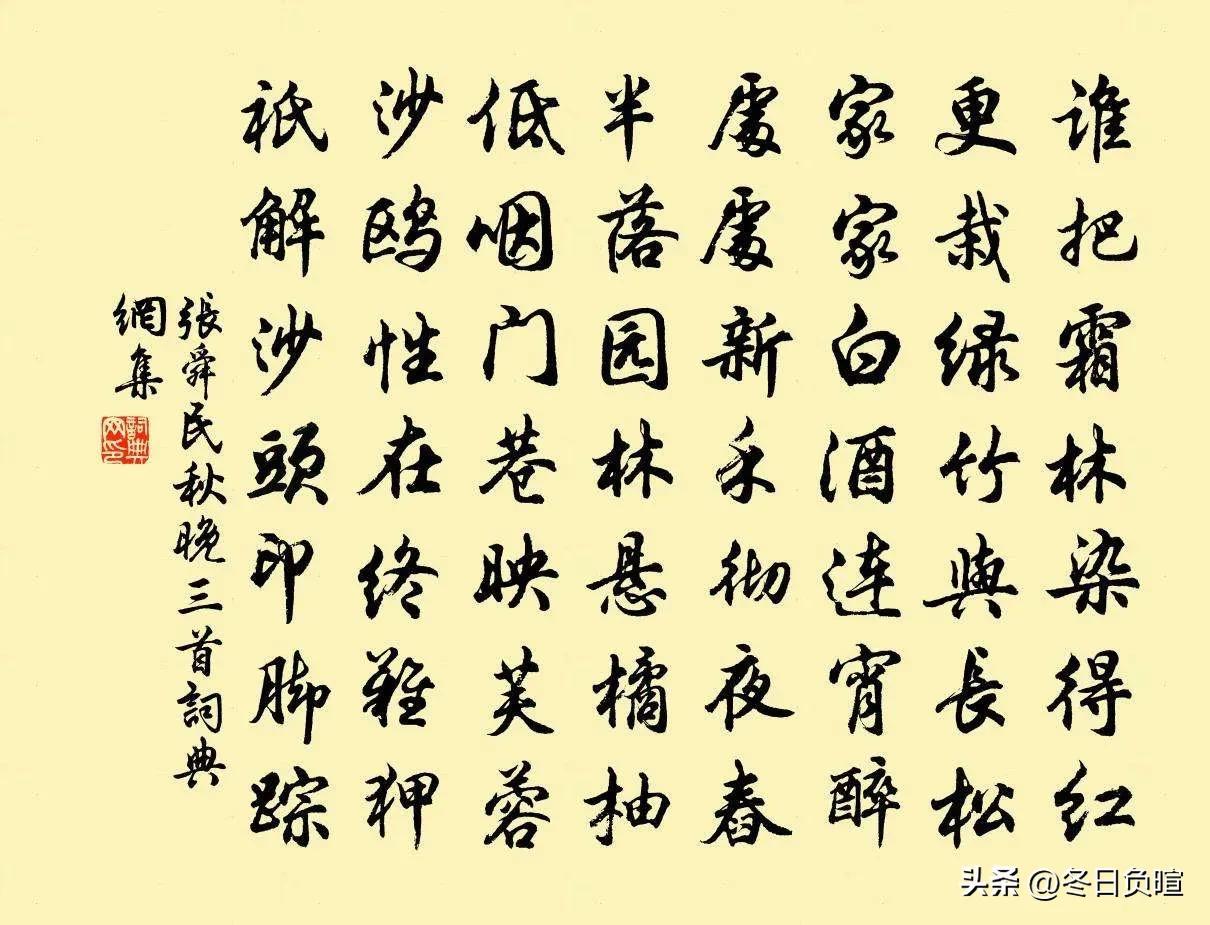 谁把霜林染得红
更栽绿竹與長松
家家白酒连宵醉
處處新禾彻夜舂
半落园林悬橘柚
低咽门巷映芙蓉
沙鸥性在终难狎
祇解沙頭印脚踪
張舜民秋晚三首詞典
網集
詞典
头条 @冬日负暄